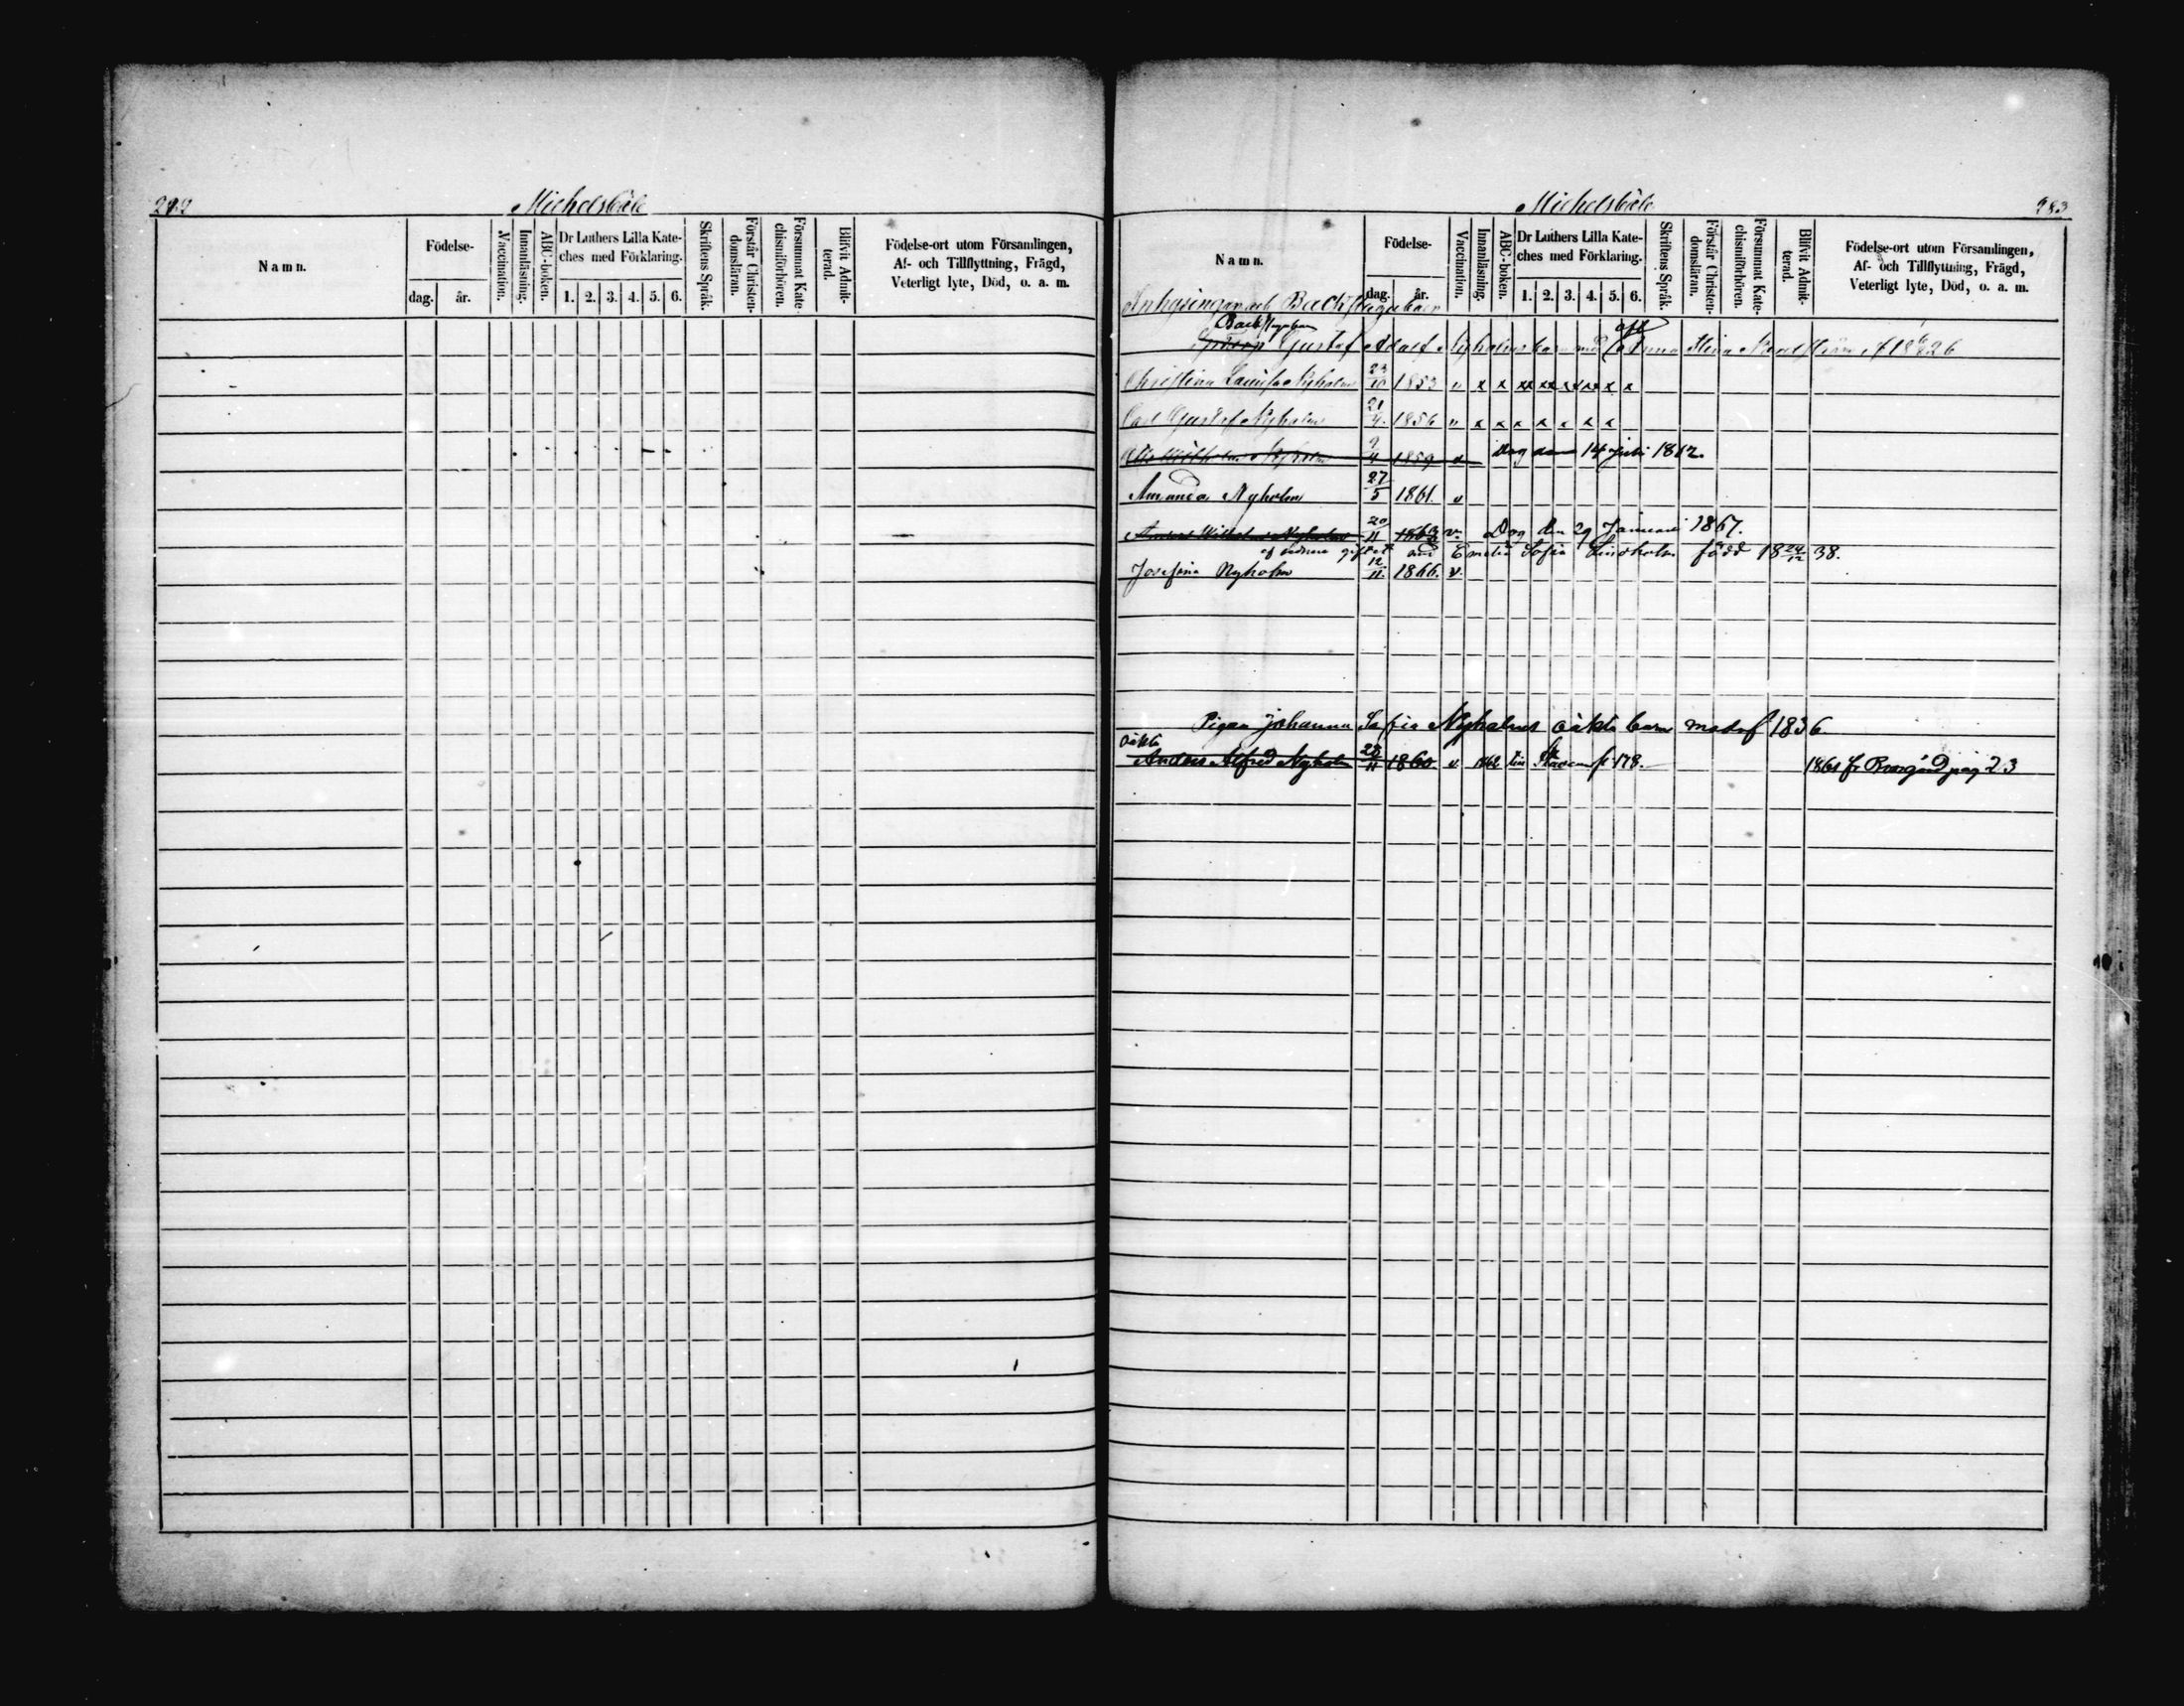 Michelsböle
Namn.
Födelse-
dag. år.
Vaccination.
Innanläsning.
ABC-boken.
Dr Luthers Lilla Kate-
ches med Förklaring.
1. 2. 3. 4. 5. 6.
Skriftens Språk.
Förstår Christen-
domsläran.
Försummat Kate-
chismiförhören.
Blifvit Admit-
terad.
Födelse-ort utom Församlingen,
Af- och Tillflyttning, Frägd,
Veterligt lyte, Död, o. a. m.
Michelsböle 283
Namn.
Födelse-
dag. år.
Vaccination.
Innanläsning.
ABC-boken.
Dr Luthers Lilla Kate-
ches med Förklaring.
1. 2. 3. 4. 5. 6.
Skriftens Språk.
Förstår Christen-
domsläran.
Försummat Kate-
chismiförhören.
Blifvit Admit-
terad.
Födelse-ort utom Församlingen,
Af- och Tillflyttning, Frägd,
Veterligt lyte, Död, o. a. m.
Inhysingar och Backstugubarn
Backstugubarn
Gustaf Adolf Nyholms barn med Anna Stina
Christina Lovisa Nyholm 23/10 1853 v x x xx xx xx xx x x
Carl Gustaf Nyholm 21/9 1856 v x x x x x x x
Wilhelm Nyholm 9/4 1859 v Dog den 14 juli 1862.
Amanda Nyholm 27/5 1861. v
Wilhelm Nyholm 20/11 1863 v. Dog den 29 Januari 1867.
gift med Emelie Sofia Lindholm född 18 24/12 38.
Josefina Nyholm 12/11. 1866. v.
Pigan Johanna Sofia Nyholms oäkta barn mod. f 1836
oäkta
Anders Alfred Nyholm 28/11 1860 v 1862 till p 178. 1861 fr pag 23